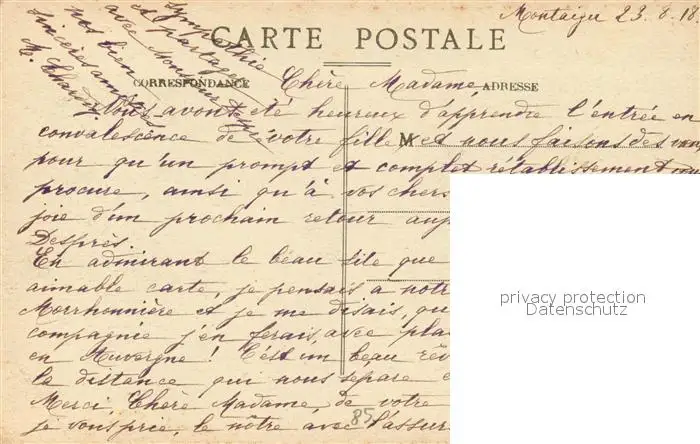 Montaigu 23.8.18
CARTE POSTALE
CORRESPONDANCE
ADRESSE
M
Chère Madame
Nous avons été heureux d'apprendre l'entrée en
convalescence de votre fille et nous faisons des
pour qu'un prompt et complet rétablissement
procure, ainsi qu'à vos chers
joie d'un prochain retour
Desprès.
En admirant le beau site que
aimable carte, je pensais à
Morrhonnière et je me disais,
compagnie j'en ferais, avec
en Auvergne ! C'est un beau
la distance qui nous sépare
Merci, Chère Madame, de votre
je vous prie, le nôtre avec
sympathie
et partagez
avec Monsieur
nos bien
sincères
M.
85
privacy protection
Datenschutz